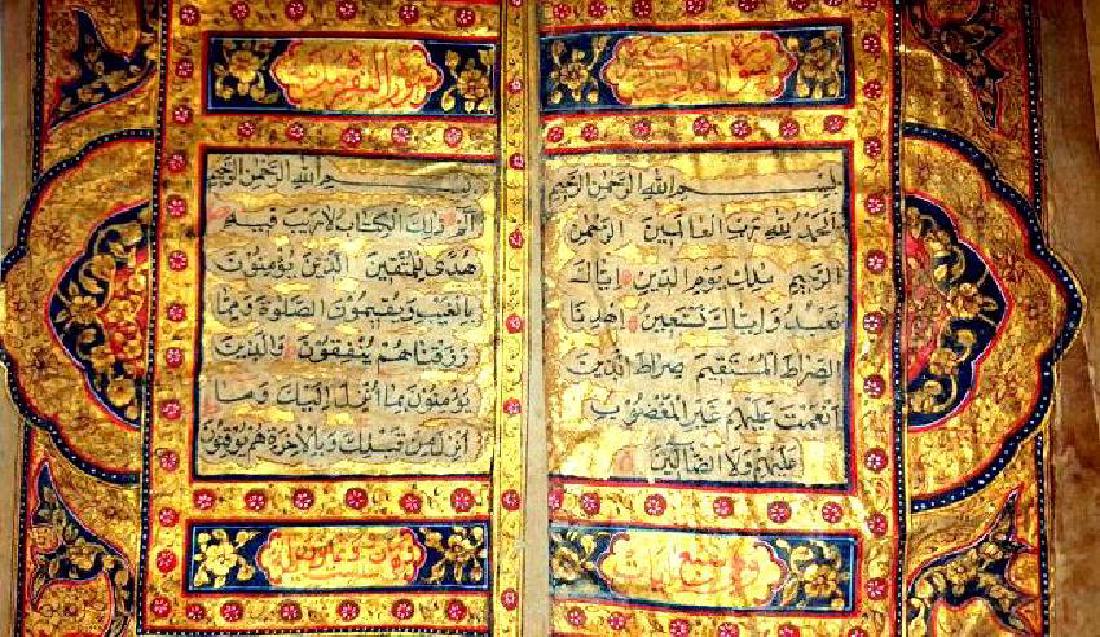 بسم الله الرحمن الرحيم
الحمد لله رب العالمين الرحمن
الرحيم ملك يوم الدين اياك
نعبد واياك نستعين اهدنا
الصراط المستقيم صراط الذين
انعمت عليهم غير المغضوب
عليهم ولا الضالين
بسم الله الرحمن الرحيم
الم ذلك الكتاب لا ريب فيه
هدى للمتقين الذين يؤمنون
بالغيب ويقيمون الصلوة ومما
رزقناهم ينفقون والذين
يؤمنون بما انزل اليك وما
انزل من قبلك وبالاخرة هم يوقنون